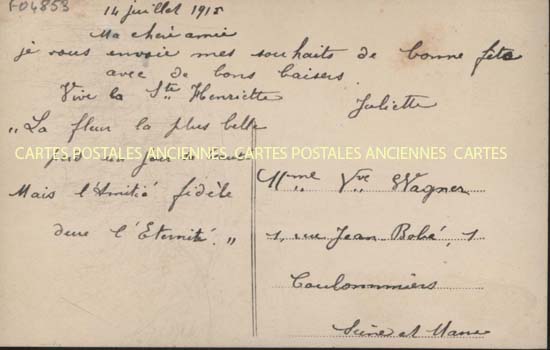 F04853
14 juillet 1915
Ma chère amie
je vous envoie mes souhaits de bonne fête
avec de bons baisers.
Vive la Ste Henriette
Juliette
"La fleur la plus belle
CARTES POSTALES ANCIENNES CARTES POSTALES ANCIENNES CARTES
un jour
Mais l'Amitié fidèle
dure l'Eternité."
Mme Vve Wagner
1, rue Jean Bobé, 1
Coulommiers
Seine et Marne